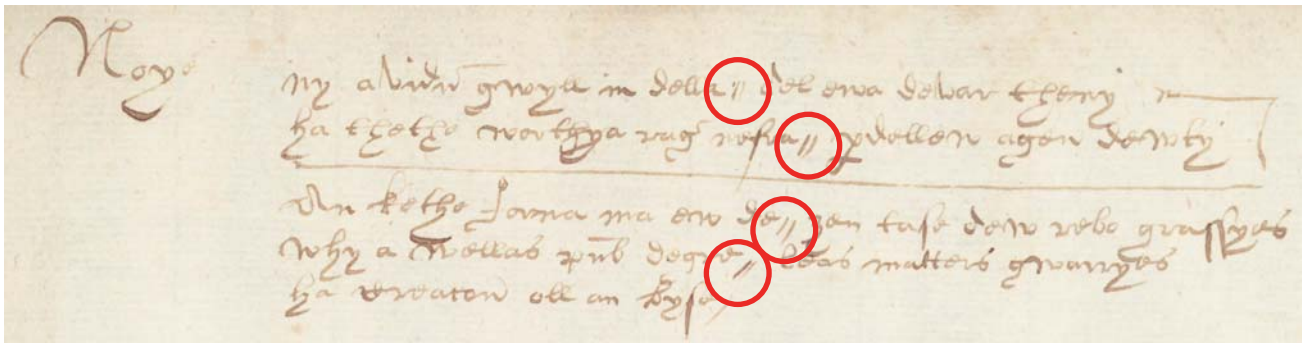 Noye
ny a vidn gwyll in della // del ewa dewar theny
ha thethe worthya rag nefra // pdellew agen dewty
An kethe jorna ma ew de // zen tase dew rebo grassyes
why a wellas pub degre // leas matters gwarryes
ha creacon oll an byse